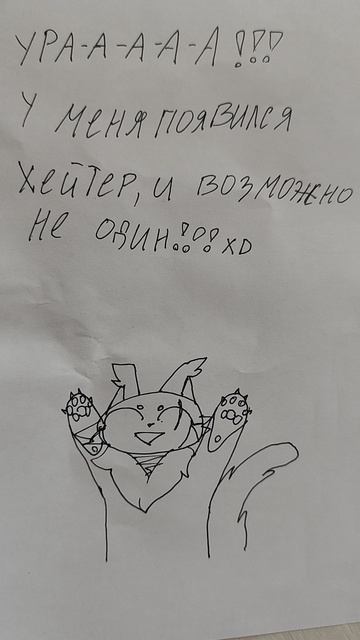 УРА-А-А-А-А!!!
У МЕНЯ ПОЯВИЛСЯ
ХЕЙТЕР, И ВОЗМОЖНО
НЕ ОДИН!!! XD